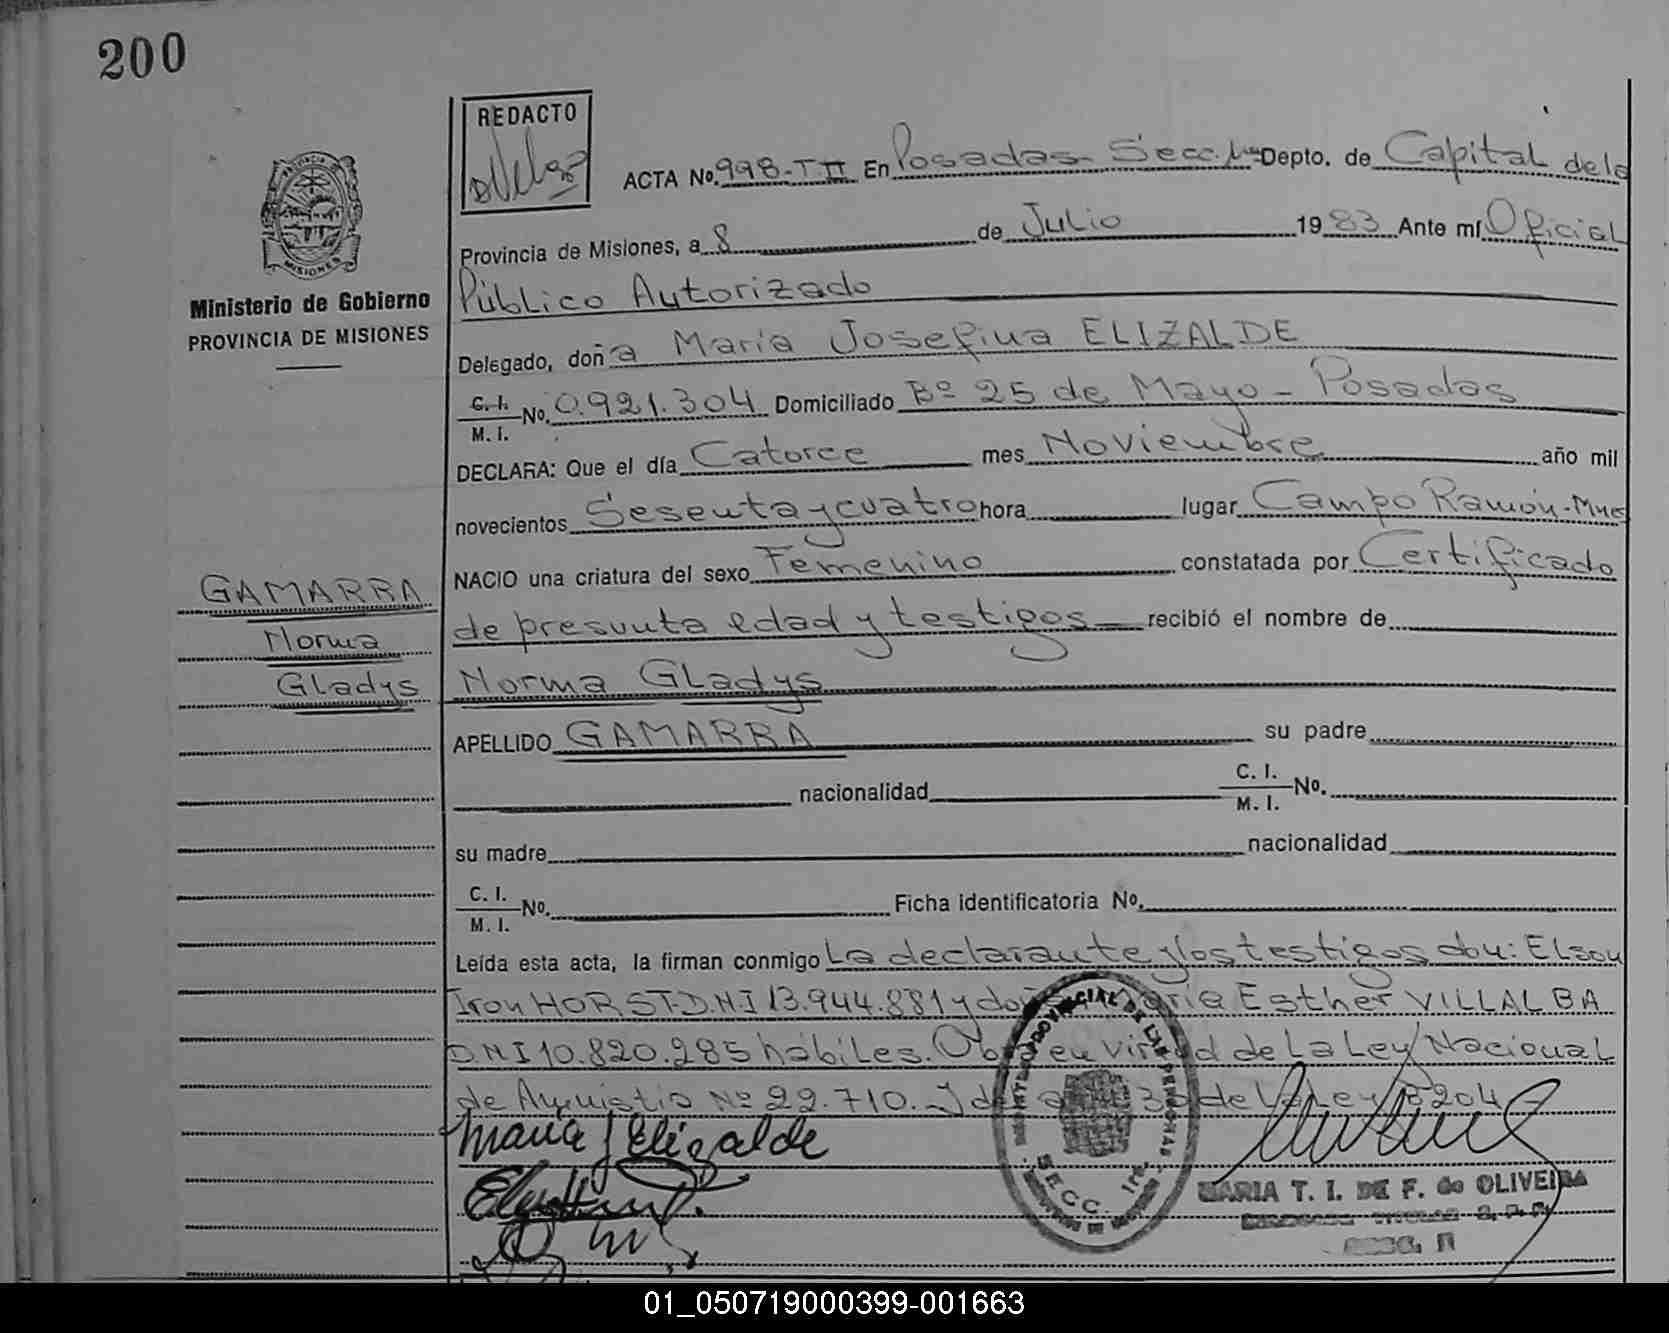 200
REDACTO
ACTA No. 998-T II En Posadas-Secc. 1ª Depto. de Capital de la
Provincia de Misiones, a 8 de Julio 1983 Ante mí Oficial
Ministerio de Gobierno
PROVINCIA DE MISIONES
Público Autorizado
Delegado, doña María Josefina ELIZALDE
C. I. / M. I. No. 0.921.304 Domiciliado Bº 25 de Mayo - Posadas
DECLARA: Que el día Catorce mes Noviembre año mil
novecientos Sesenta y cuatro hora lugar Campo Ramón-Mnes
NACIO una criatura del sexo Femenino constatada por Certificado
GAMARRA
Norma
Gladys
de presunta edad y testigos recibió el nombre de
Norma Gladys
APELLIDO GAMARRA su padre
nacionalidad C. I. / M. I. No.
su madre nacionalidad
C. I. / M. I. No. Ficha identificatoria No.
Leída esta acta, la firman conmigo La declarante y los testigos don: Elson
Iron HORST-D.N.I 13.944.881 y doña María Esther VILLALBA
D.N.I 10.820.285 hábiles. en virtud de la Ley Nacional
de Amnistía Nº 22.710. de la Ley 8204
Maria J Elizalde
SECC. 1ra.
MARIA T. I. DE F. de OLIVEIRA
01_050719000399-001663